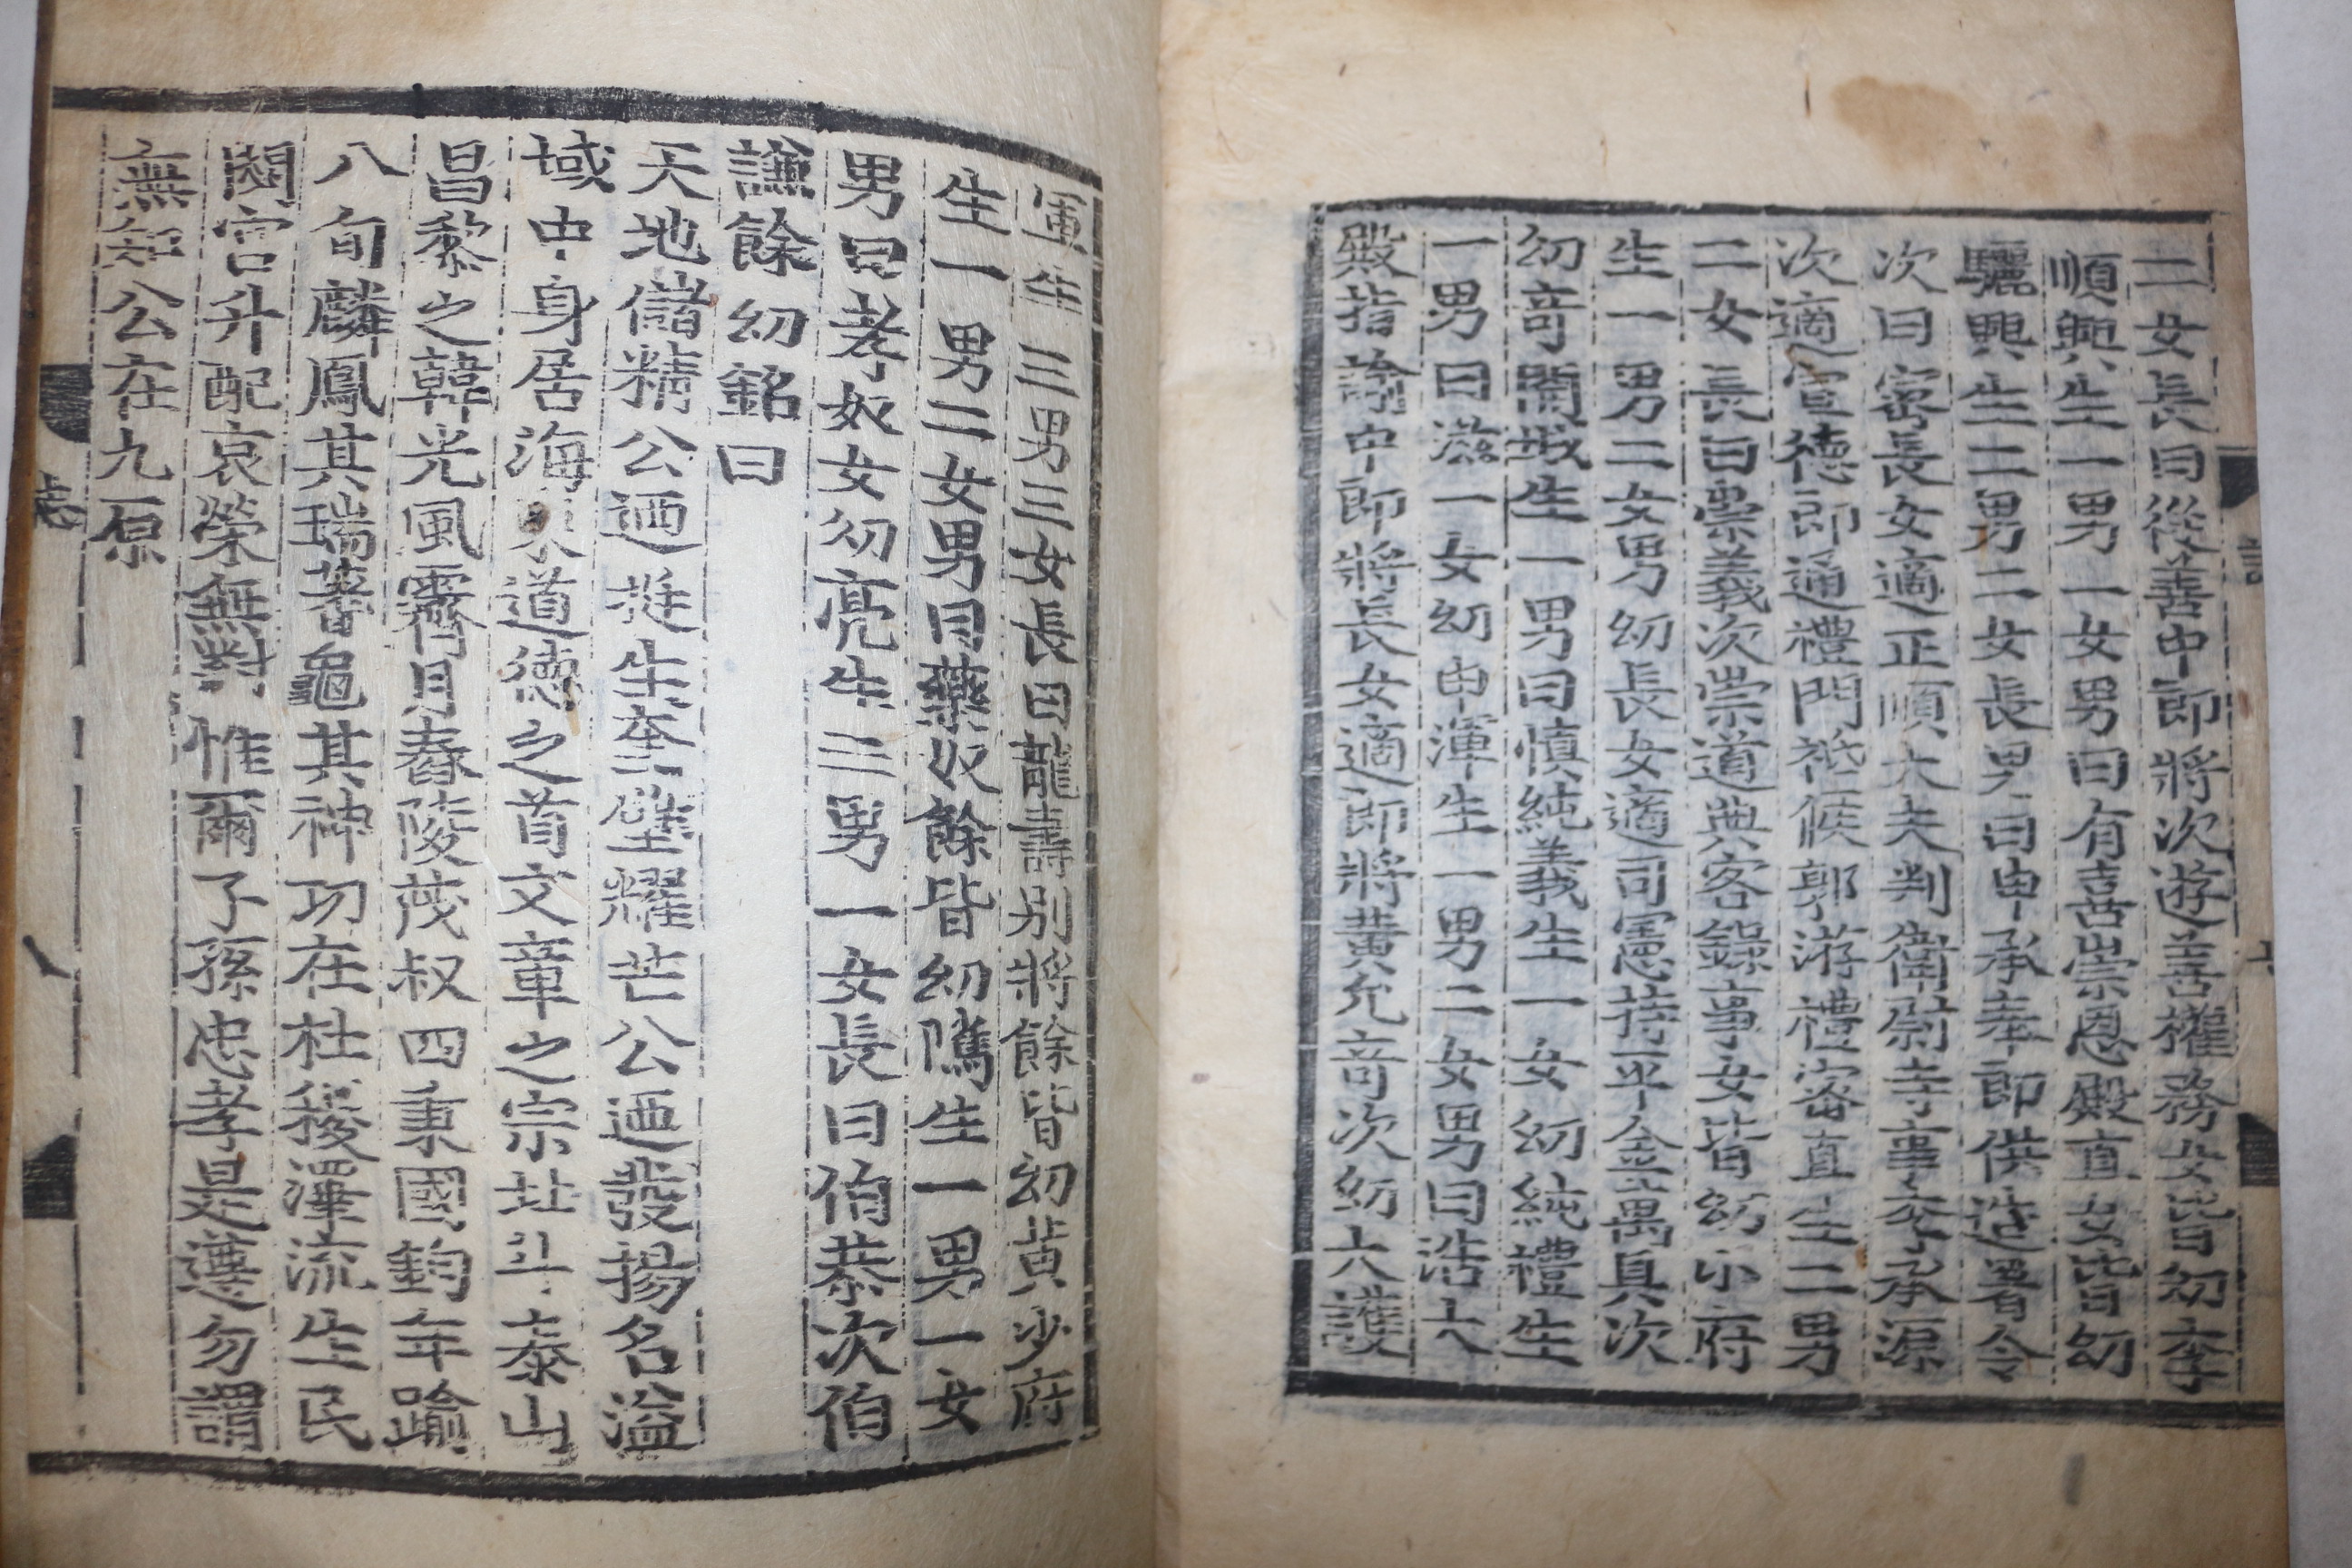 二女長曰從善中郎將次遊善權務女皆幼李
順興生一男一女男曰有喜崇恩殿直女皆幼
驪興生二男二女長男曰申承奉郎供造署令
次曰密長女適正順大夫判衛尉寺事李承源
次適宣德郎通禮門祗候郭游禮密直生二男
二女長曰崇義次崇道典客錄事女皆幼小府
生一男二女男幼長女適司憲持平金萬具次
幼奇蘭城生一男曰慎純義生一女幼純禮生
一男曰滋一女幼申渾生一男二女男曰浩上
殿指諭中郎將長女適郎將黃允奇次幼六護
軍生三男三女長曰龍壽別將餘皆幼黃少府
生一男二女男曰藥奴餘皆幼隲生一男一女
男曰孝奴女幼亮生三男一女長曰伯恭次伯
謙餘幼銘曰
天地儲精公迺挺生奎璧耀芒公迺發揚名溢
域中身居海東道德之首文章之宗北斗泰山
昌黎之韓光風霽月舂陵茂叔四秉國鈞年踰
八旬麟鳳其瑞蓍龜其神功在社稷澤流生民
閟宮升配哀榮無對惟爾子孫忠孝是遵勿謂
無知公在九原
志